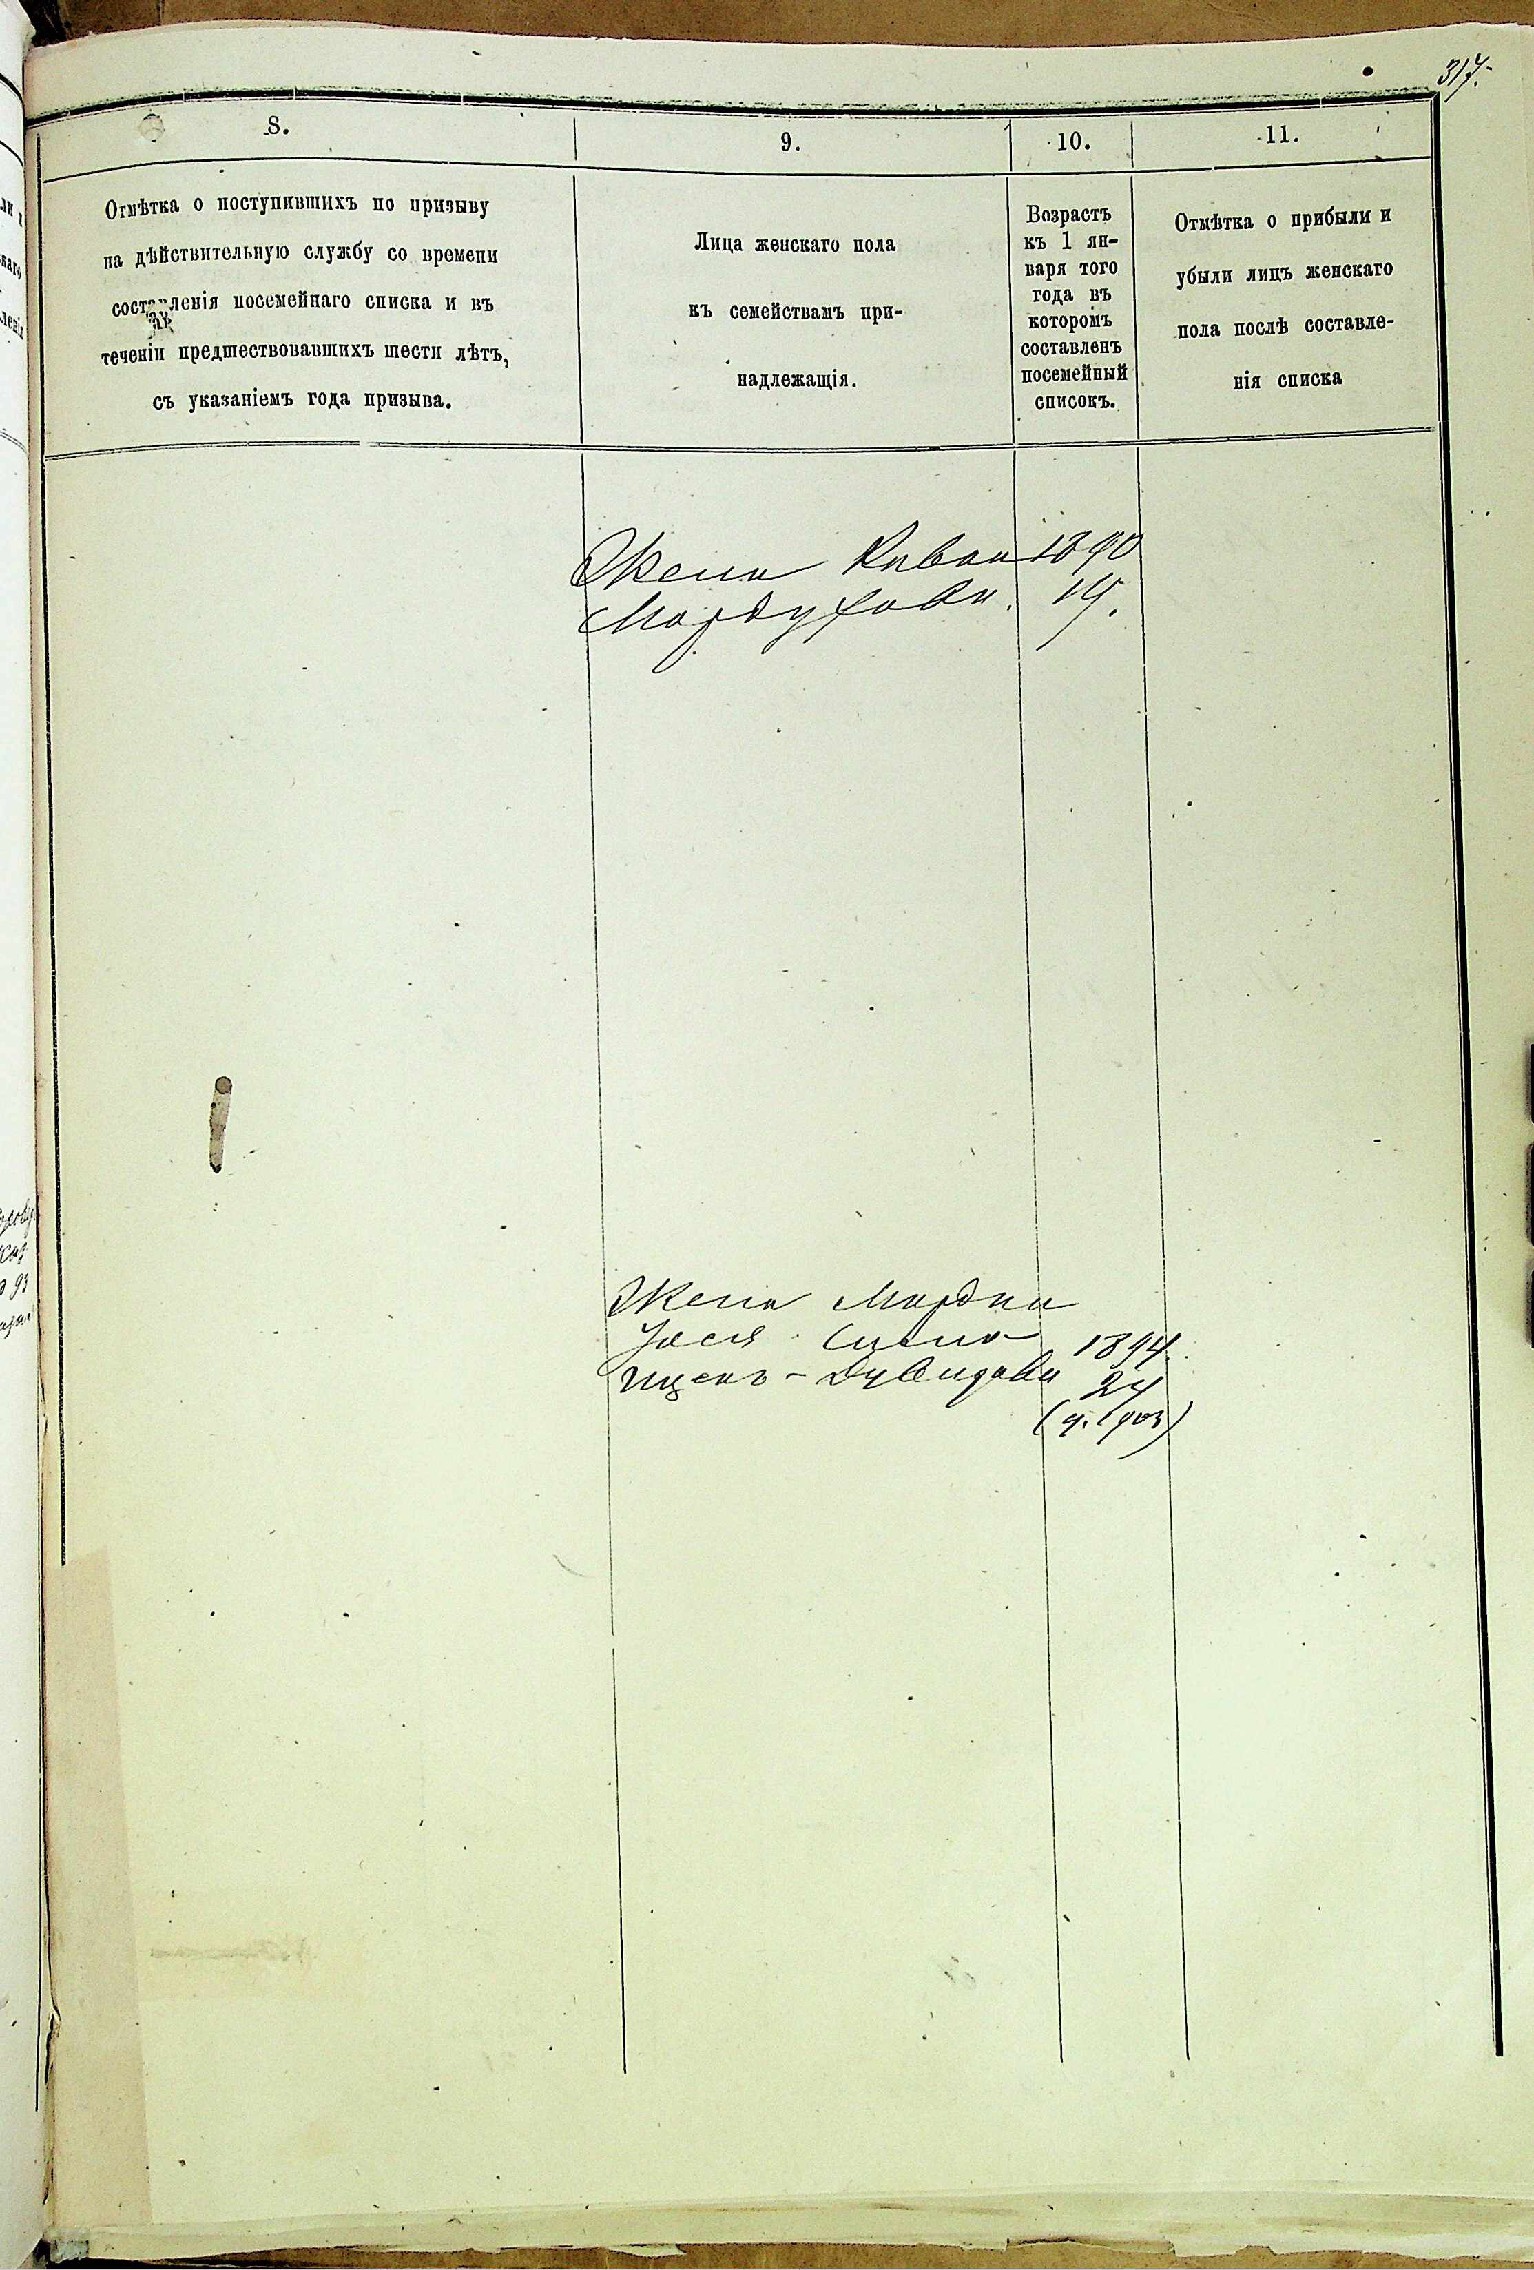 317.
8.
9.
10.
11.
Отмѣтка о поступившихъ по призыву
на дѣйствительную службу со времени
составленія посемейнаго списка и въ
теченіи предшествовавшихъ шести лѣтъ,
съ указаніемъ года призыва.
Лица женскаго пола
къ семействамъ при-
надлежащія.
Возрастъ
къ 1 ян-
варя того
года въ
которомъ
составленъ
посемейный
списокъ.
Отмѣтка о прибыли и
убыли лицъ женскаго
пола послѣ составле-
нія списка
Жена 1890
Мордухова. 19.
Жена Мордки
1894.
Ицекъ-Дувидова 24